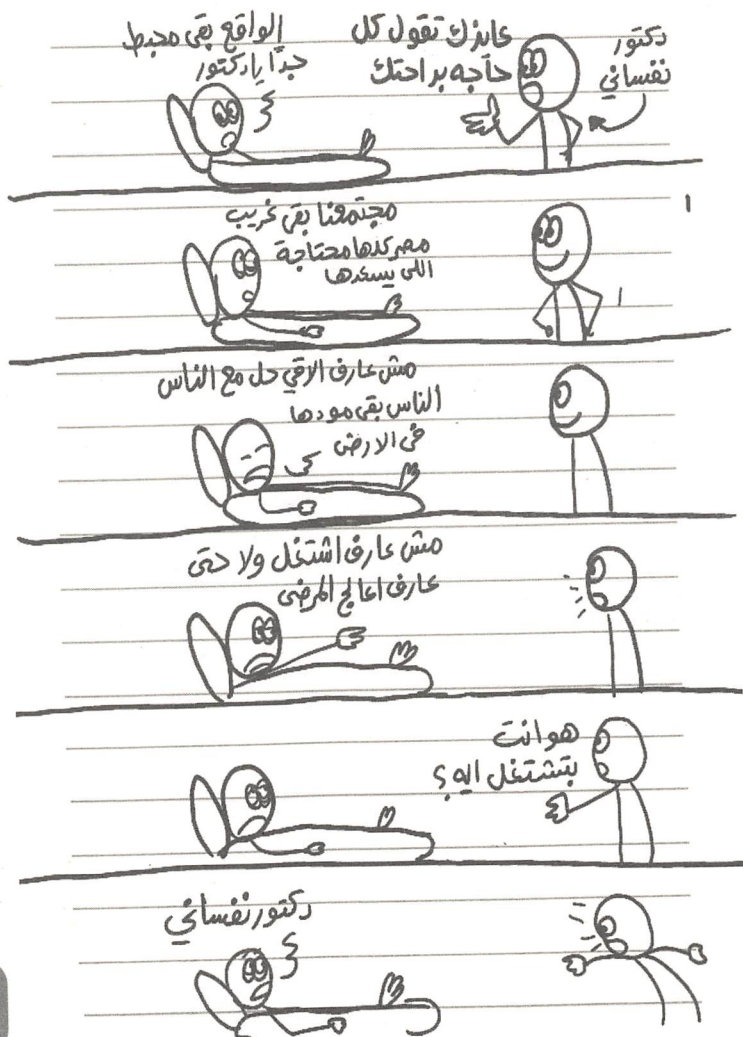 دكتور
نفساني
عايزك تقول كل
حاجه براحتك
الواقع بقى محبط
جدًا يا دكتور
مجتمعنا بقى غريب
مصر كلها محتاجة
اللى يسعدها
مش عارف الاقي حل مع الناس
الناس بقى مودها
في الارض
مش عارف اشتغل ولا حتى
عارف اعالج المرضى
هو انت
بتشتغل ايه؟
دكتور نفساني